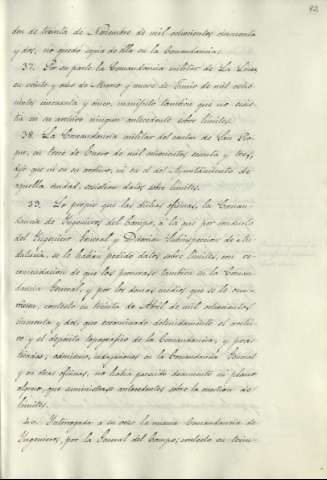 92
den de treinta de Noviembre de mil ochocientos cincuenta
y dos, no quedó copia de ella en la Comandancia.
37. Por su parte la Comandancia militar de La Linea
en veinte y uno de Marzo y nueve de Junio de mil ocho-
cientos cincuenta y cinco, manifestó tambien que no exis-
tía en su archivo ningun antecedente sobre limites.
38. La Comandancia militar del canton de San Ro-
que, en trece de Enero de mil ochocientos sesenta y tres,
dijo que ni en su archivo, ni en el del Ayuntamiento de
aquella ciudad, existian datos sobre limites.
39. Lo propio que las dichas oficinas, la Coman-
dancia de Ingenieros del Campo, á la que por conducto
del Ingeniero General y Direccion Subinspeccion de An-
dalucia, se le habian pedido datos sobre limites, con re-
comendacion de que los procurase tambien en la Coman-
dancia General, y por los demas medios que se le ocur-
riesen, contestó en treinta de Abril de mil ochocientos
cincuenta y dos, que examinado detenidamente el archi-
vo y el depósito topografico de la Comandancia, y prac-
ticadas, ademas, indagaciones en la Comandancia General
y en otras oficinas, no habia parecido documento ni plano
alguno, que suministrase antecedentes sobre la cuestion de
limites.
40. Interrogada á su vez la misma Comandancia de
Ingenieros, por la General del Campo, contestó en trein-